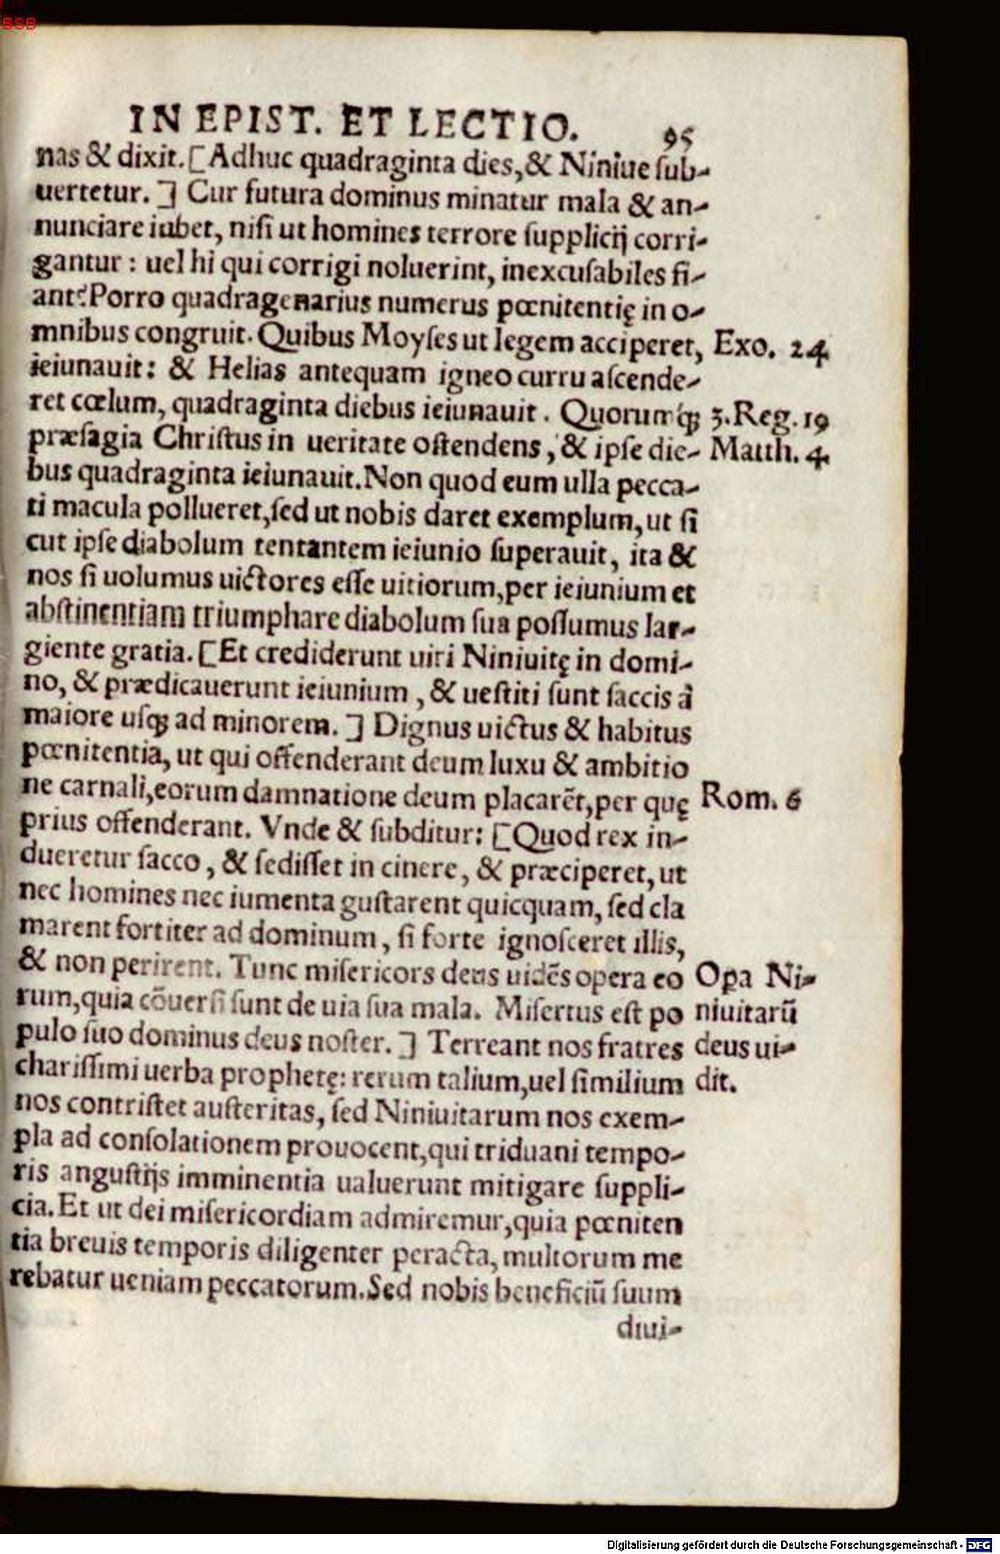 BSB
IN EPIST. ET LECTIO. 95
nas & dixit. [Adhuc quadraginta dies, & Niniue sub-
uertetur.] Cur futura dominus minatur mala & an-
nunciare iubet, nisi ut homines terrore supplicij corri-
gantur: uel hi qui corrigi noluerint, inexcusabiles si-
ant? Porro quadragenarius numerus pœnitentię in o-
mnibus congruit. Quibus Moyses ut legem acciperet, Exo. 24
ieiunauit: & Helias antequam igneo curru ascende-
ret cœlum, quadraginta diebus ieiunauit. Quorumq́ꝫ 3. Reg. 19
præsagia Christus in ueritate ostendens, & ipse die- Matth. 4
bus quadraginta ieiunauit. Non quod eum ulla pecca-
ti macula pollueret, sed ut nobis daret exemplum, ut si
cut ipse diabolum tentantem ieiunio superauit, ita &
nos si uolumus uictores esse uitiorum, per ieiunium et
abstinentiam triumphare diabolum sua possumus lar-
giente gratia. [Et crediderunt uiri Niniuitę in domi-
no, & prædicauerunt ieiunium, & uestiti sunt saccis à
maiore usqꝫ ad minorem.] Dignus uictus & habitus
pœnitentia, ut qui offenderant deum luxu & ambitio
ne carnali, eorum damnatione deum placarēt, per quę Rom. 6
prius offenderant. Vnde & subditur: [Quod rex in-
dueretur sacco, & sedisset in cinere, & præciperet, ut
nec homines nec iumenta gustarent quicquam, sed cla
marent fortiter ad dominum, si forte ignosceret illis,
& non perirent. Tunc misericors deus uidēs opera eo Oꝑa Ni-
rum, quia cōuersi sunt de uia sua mala. Misertus est po niuitarū
pulo suo dominus deus noster.] Terreant nos fratres deus ui-
charissimi uerba prophetę: rerum talium, uel similium dit.
nos contristet austeritas, sed Niniuitarum nos exem-
pla ad consolationem prouocent, qui triduani tempo-
ris angustijs imminentia ualuerunt mitigare suppli-
cia. Et ut dei misericordiam admiremur, quia pœniten
tia breuis temporis diligenter peracta, multorum me
rebatur ueniam peccatorum. Sed nobis beneficiū suum
diui-
Digitalisierung gefördert durch die Deutsche Forschungsgemeinschaft - DFG